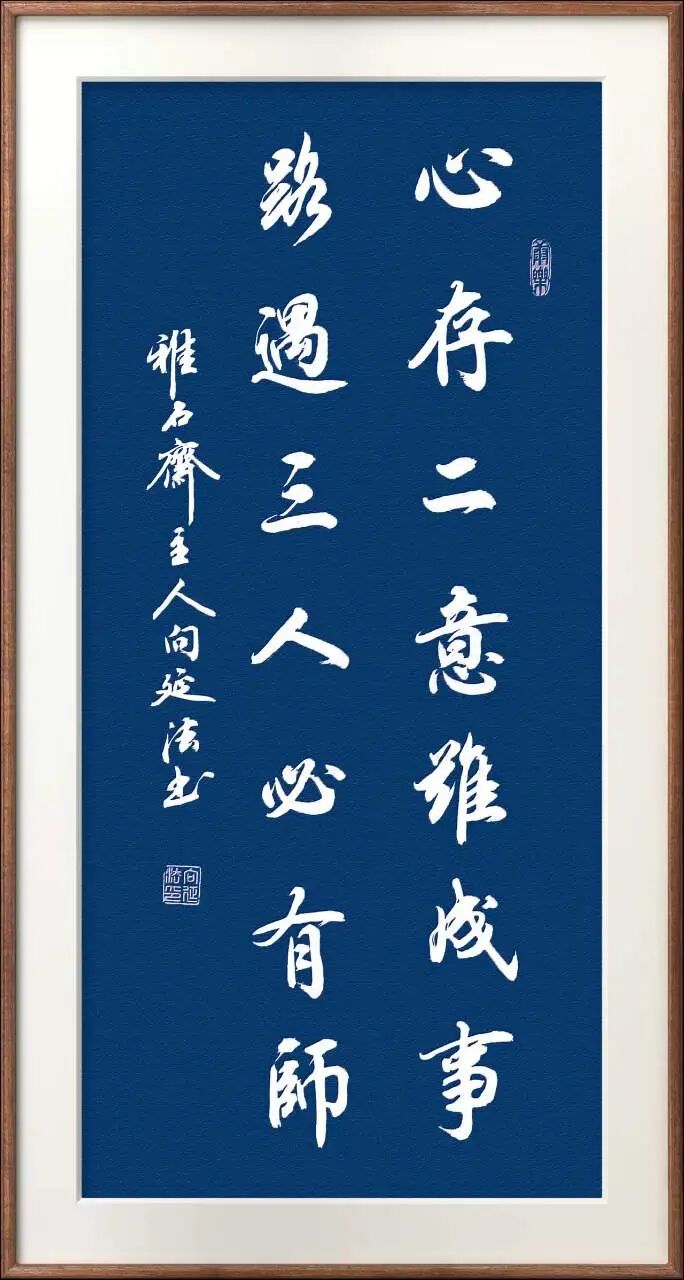 心存二意難成事
路遇三人必有師
雅石齋主人向延法書
向延法印